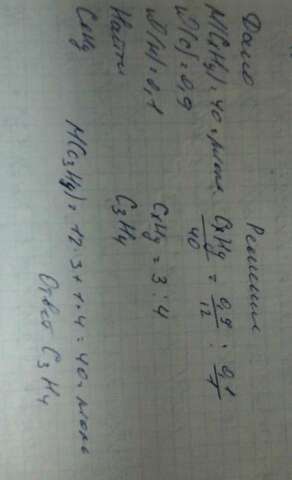 Дано
M(CxHy) = 40 г/моль
ω(C) = 0,9
ω(H) = 0,1
Найти
CxHy
Решение
CxHy/40 = 0,9/12 : 0,1/1
CxHy = 3 : 4
C3H4
M(C3H4) = 12·3 + 1·4 = 40 г/моль
Ответ C3H4